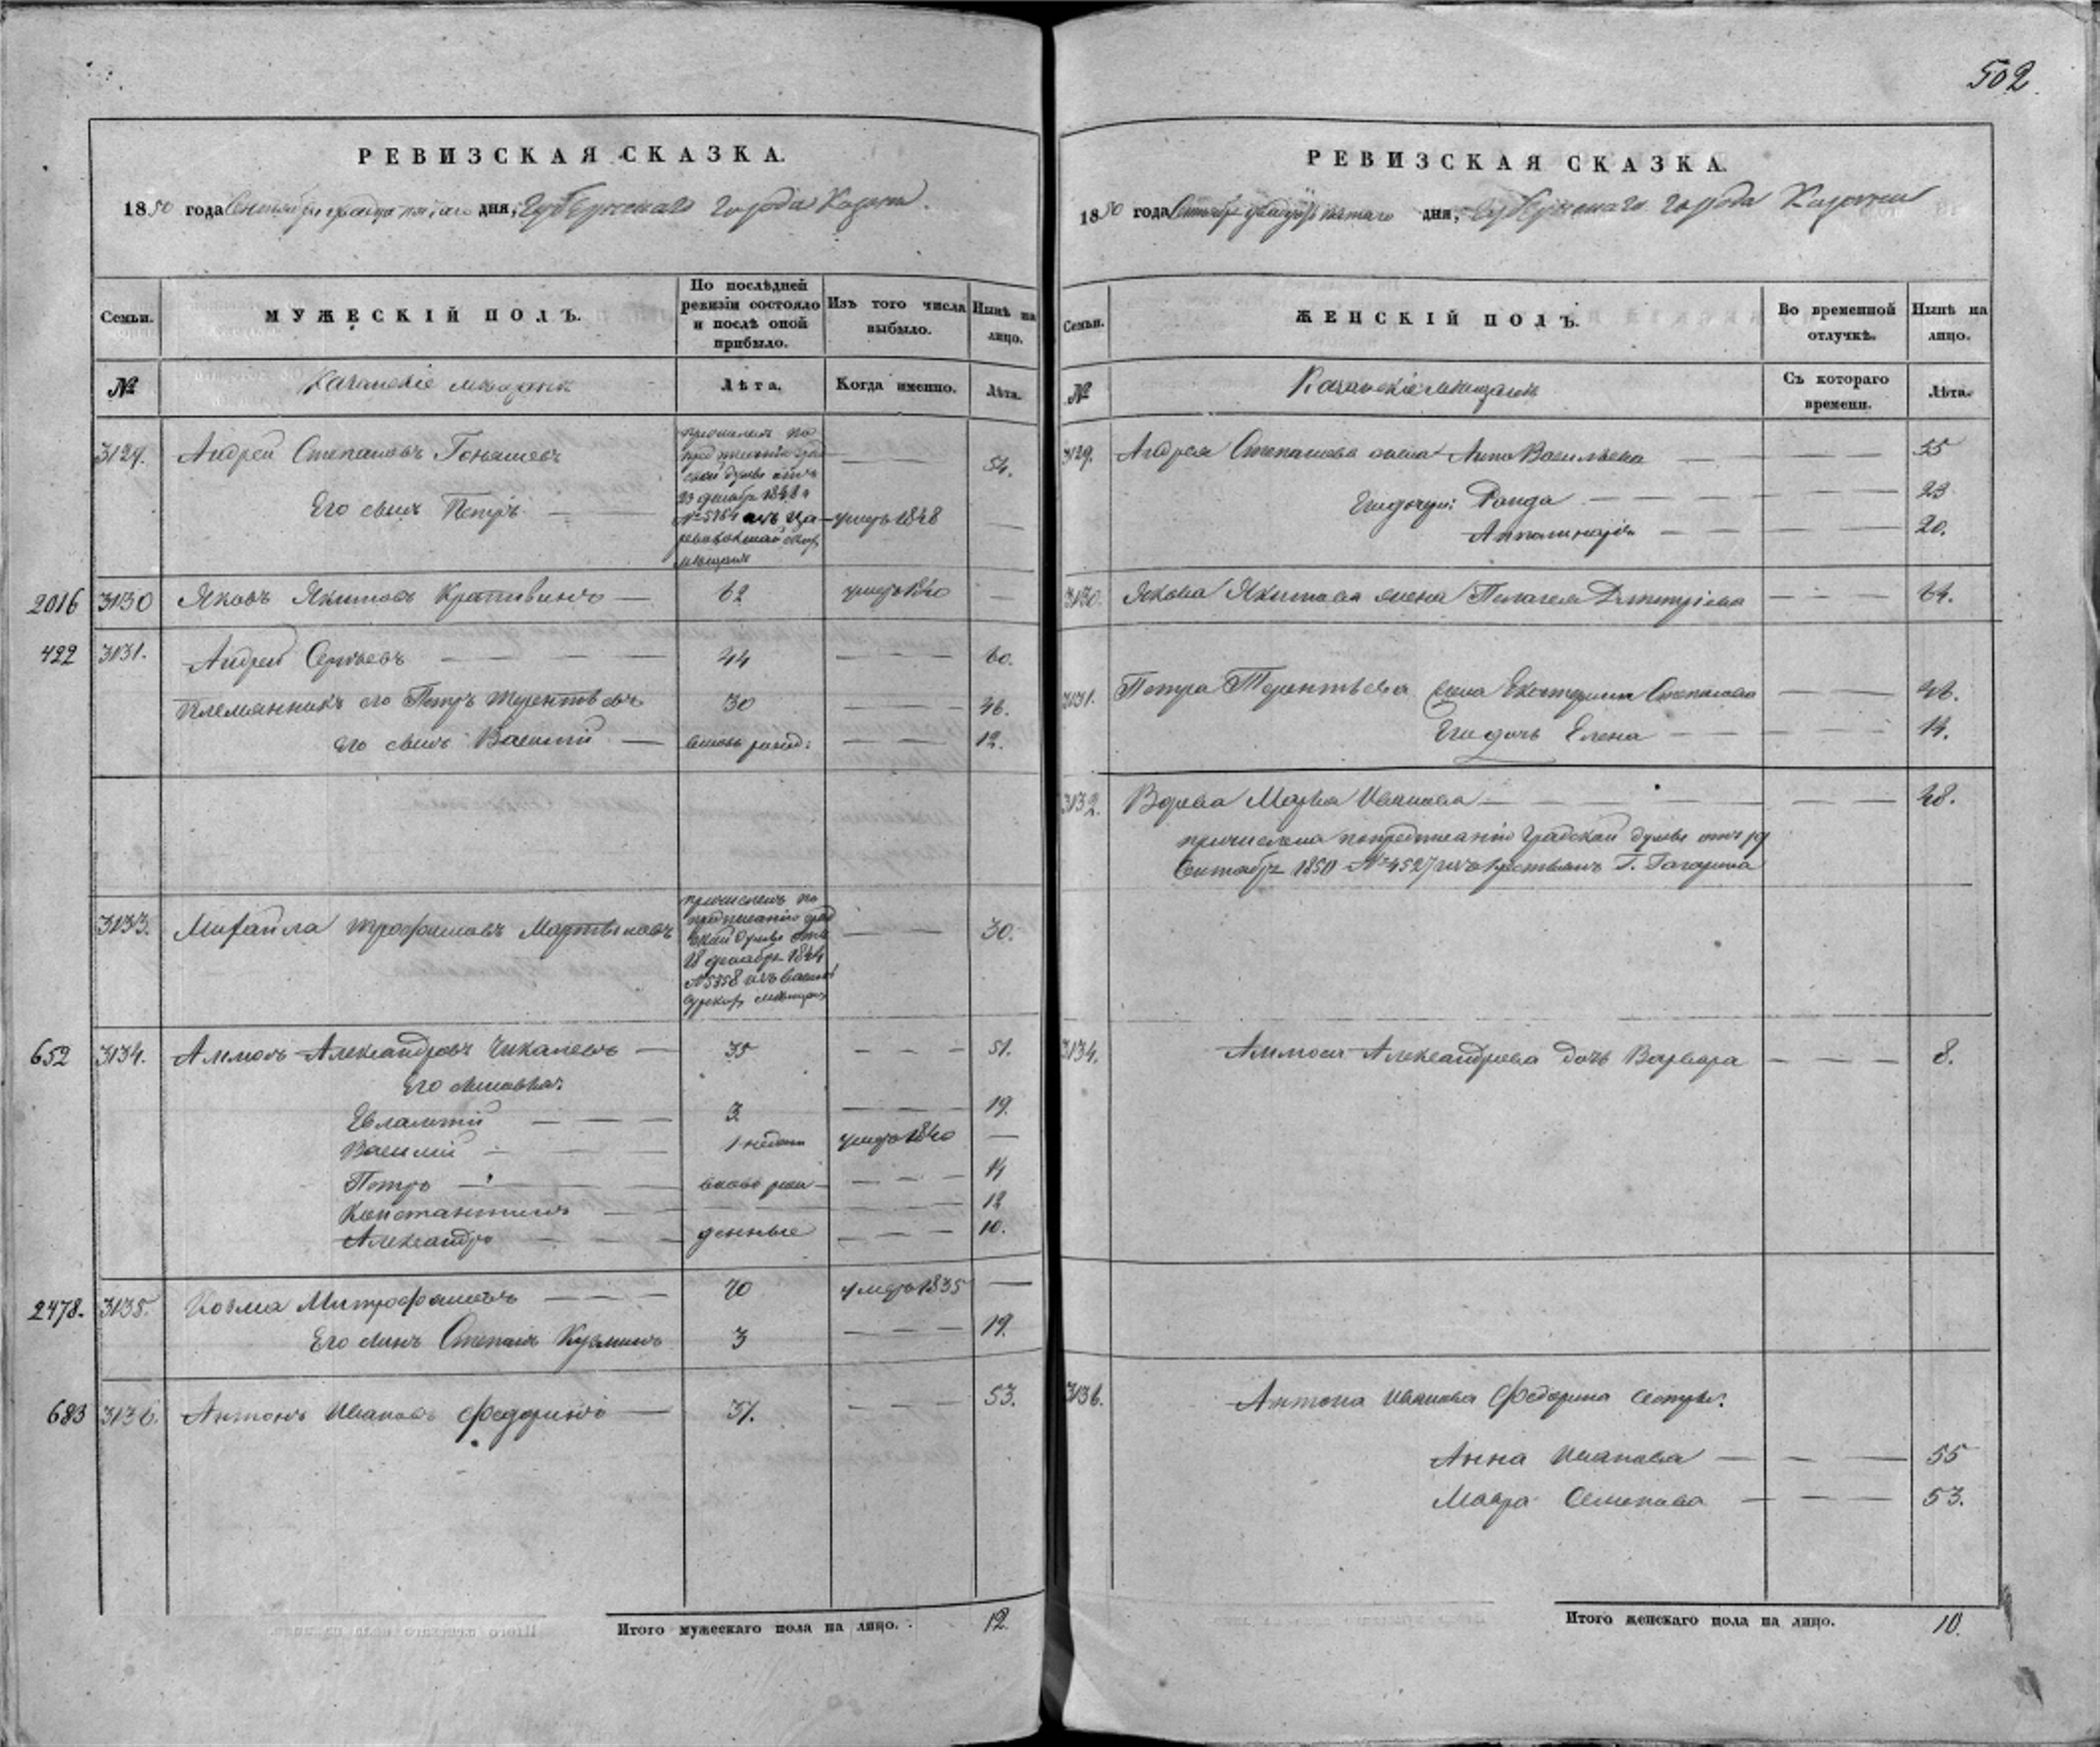 502.
РЕВИЗСКАЯ СКАЗКА.
1850 года Сентября двадцать пятаго дня, Губернскаго города Казани.
Семьи.
МУЖЕСКІЙ ПОЛЪ.
По послѣдней ревизіи состояло и послѣ оной прибыло.
Изъ того числа выбыло.
Нынѣ на лицо.
№
Казанскіе мѣщане
Лѣта.
Когда именно.
Лѣта.
3129. Андрей Степановъ — 54.
причисленъ по
предписанію град
ской думы отъ
23 декабря 1848 г
№ 5164 изъ ца
ревококшай
мѣщанъ
Его сынъ Петръ — умеръ 1848 —
2016 3130 Яковъ Якимовъ Крапивинъ — 62 умеръ 1840 —
422 3131. Андрей Сергѣевъ — 44 — 60.
Племянникъ его Петръ Терентьевъ 30 — 46.
его сынъ Василій — вновь рожд: — 12.
3133. Михайла Трофимовъ Мартыновъ — 30.
причисленъ по
предписанію град
ской думы отъ
18 декабря 1844
№ 5358 изъ
мѣщанъ
652 3134. Алимпъ Александровъ Чикалевъ — 35 — 51.
Его сыновья:
Евлампій — 3 — 19.
Василій — 1 недели умеръ 1840 —
Петръ — вновь рож — 14
Константинъ — 12
Александръ — денные — 10.
2478. 3135. Козма Митрофановъ — 70 умеръ 1835 —
Его сынъ Степанъ Кузминъ 3 — 19.
683 3136. Антонъ Ивановъ Федоринъ — 37. — 53.
Итого мужескаго пола на лицо. 12.
РЕВИЗСКАЯ СКАЗКА.
1850 года Сентября двадцать пятаго дня, Губернскаго города Казани
Семьи.
ЖЕНСКІЙ ПОЛЪ.
Во временной отлучкѣ.
Нынѣ на лицо.
№
Казанскіе мѣщане
Съ котораго времени.
Лѣта.
3129. Андрея Степанова жена Анна Васильева — 55
Его дочери: Раида — 23
Апполинарія — 20.
3130. Якова Якимова жена Пелагея Дмитріева — 64.
3131. Петра Терентьева жена Екатерина Степанова — 46.
Его дочь Елена — 14.
3132. Вдова Марья Иванова — 48.
причислена по предписанію Градской думы отъ 19
Сентября 1850 № 4527 изъ крестьянъ Г. Гагарина
3134. Алимпа Александрова дочь Варвара — 8.
3136. Антона Иванова Федорина сестры:
Анна Иванова — 55
Мавра Семенова — 53.
Итого женскаго пола на лицо. 10.